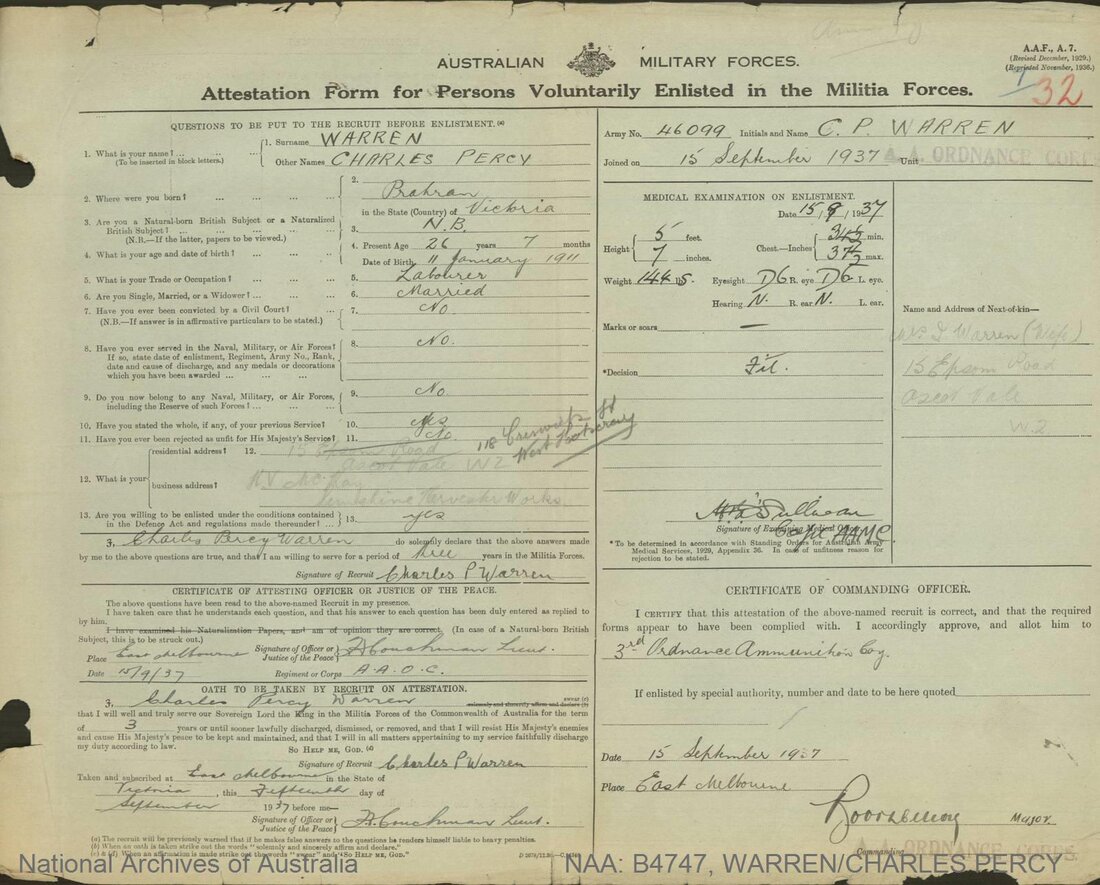 AUSTRALIAN MILITARY FORCES.
A.A.F., A. 7.
(Revised December, 1929.)
(Reprinted November, 1936.)
1/32
Attestation Form for Persons Voluntarily Enlisted in the Militia Forces.
QUESTIONS TO BE PUT TO THE RECRUIT BEFORE ENLISTMENT.(a)
1. What is your name? ... ... ...
(To be inserted in block letters.)
1. Surname WARREN
Other Names CHARLES PERCY
2. Where were you born? ... ... ... ...
2. Prahran
in the State (Country) of Victoria
3. Are you a Natural-born British Subject or a Naturalized
British Subject? ... ... ... ...
(N.B.—If the latter, papers to be viewed.)
3. N.B.
4. What is your age and date of birth? ... ...
4. Present Age 26 years 7 months
Date of Birth 11 January 1911
5. What is your Trade or Occupation? ... ...
5. Labourer
6. Are you Single, Married, or a Widower? ... ...
6. Married
7. Have you ever been convicted by a Civil Court? ...
(N.B.—If answer is in affirmative particulars to be stated.)
7. No.
8. Have you ever served in the Naval, Military, or Air Forces?
If so, state date of enlistment, Regiment, Army No., Rank,
date and cause of discharge, and any medals or decorations
which you have been awarded ... ... ...
8. No.
9. Do you now belong to any Naval, Military, or Air Forces,
including the Reserve of such Forces? ... ...
9. No
10. Have you stated the whole, if any, of your previous Service?
10. yes
11. Have you ever been rejected as unfit for His Majesty's Service?
11. No
12. What is your
residential address? 12. 15 Epsom Road
Ascot Vale W2
118 St
West Footscray
business address?
H V McKay
Sunshine Harvester Works
13. Are you willing to be enlisted under the conditions contained
in the Defence Act and regulations made thereunder? ...
13. yes
3, Charles Percy Warren do solemnly declare that the above answers made
by me to the above questions are true, and that I am willing to serve for a period of three years in the Militia Forces.
Signature of Recruit Charles P Warren
CERTIFICATE OF ATTESTING OFFICER OR JUSTICE OF THE PEACE.
The above questions have been read to the above-named Recruit in my presence.
I have taken care that he understands each question, and that his answer to each question has been duly entered as replied to
by him.
I have examined his Naturalization Papers, and am of opinion they are correct. (In case of a Natural-born British
Subject, this is to be struck out.)
Place East Melbourne
Signature of Officer or
Justice of the Peace
A Couchman Lieut.
Date 15/9/37
Regiment or Corps A.A.O.C.
OATH TO BE TAKEN BY RECRUIT ON ATTESTATION.
3, Charles Percy Warren swear (c)
solemnly and sincerely affirm and declare (b)
that I will well and truly serve our Sovereign Lord the King in the Militia Forces of the Commonwealth of Australia for the term
of 3 years or until sooner lawfully discharged, dismissed, or removed, and that I will resist His Majesty's enemies
and cause His Majesty's peace to be kept and maintained, and that I will in all matters appertaining to my service faithfully discharge
my duty according to law.
SO HELP ME, GOD. (d)
Signature of Recruit Charles P Warren
Taken and subscribed at East Melbourne in the State of
Victoria, this Fifteenth day of
September 1937 before me—
Signature of Officer or
Justice of the Peace
A. Couchman Lieut.
(a) The recruit will be previously warned that if he makes false answers to the questions he renders himself liable to heavy penalties.
(b) When an oath is taken strike out the words "solemnly and sincerely affirm and declare."
(c) & (d) When an affirmation is made strike out the words "swear" and "SO HELP ME, GOD."
Army No. 46099 Initials and Name C. P. WARREN
Joined on 15 September 1937 Unit A.A. ORDNANCE CORPS
MEDICAL EXAMINATION ON ENLISTMENT.
Date 15/9/1937
Height 5 feet.
7 inches.
Chest—Inches 34½ min.
37½ max.
Weight 144 lbs.
Eyesight D6 R. eye D6 L. eye.
Hearing N. R. ear N. L. ear.
Marks or scars —
*Decision Fit.
Signature of Examining Medical Officer
Capt AAMC
*To be determined in accordance with Standing Orders for Australian Army
Medical Services, 1929, Appendix 36. In case of unfitness reason for
rejection to be stated.
Name and Address of Next-of-kin—
Mrs I Warren (Wife)
15 Epsom Road
Ascot Vale
W.2
CERTIFICATE OF COMMANDING OFFICER.
I CERTIFY that this attestation of the above-named recruit is correct, and that the required
forms appear to have been complied with. I accordingly approve, and allot him to
3rd Ordnance Ammunition Coy.
If enlisted by special authority, number and date to be here quoted
Date 15 September 1937
Place East Melbourne
Major
Commanding A.A. ORDNANCE CORPS.
National Archives of Australia
NAA: B4747, WARREN/CHARLES PERCY